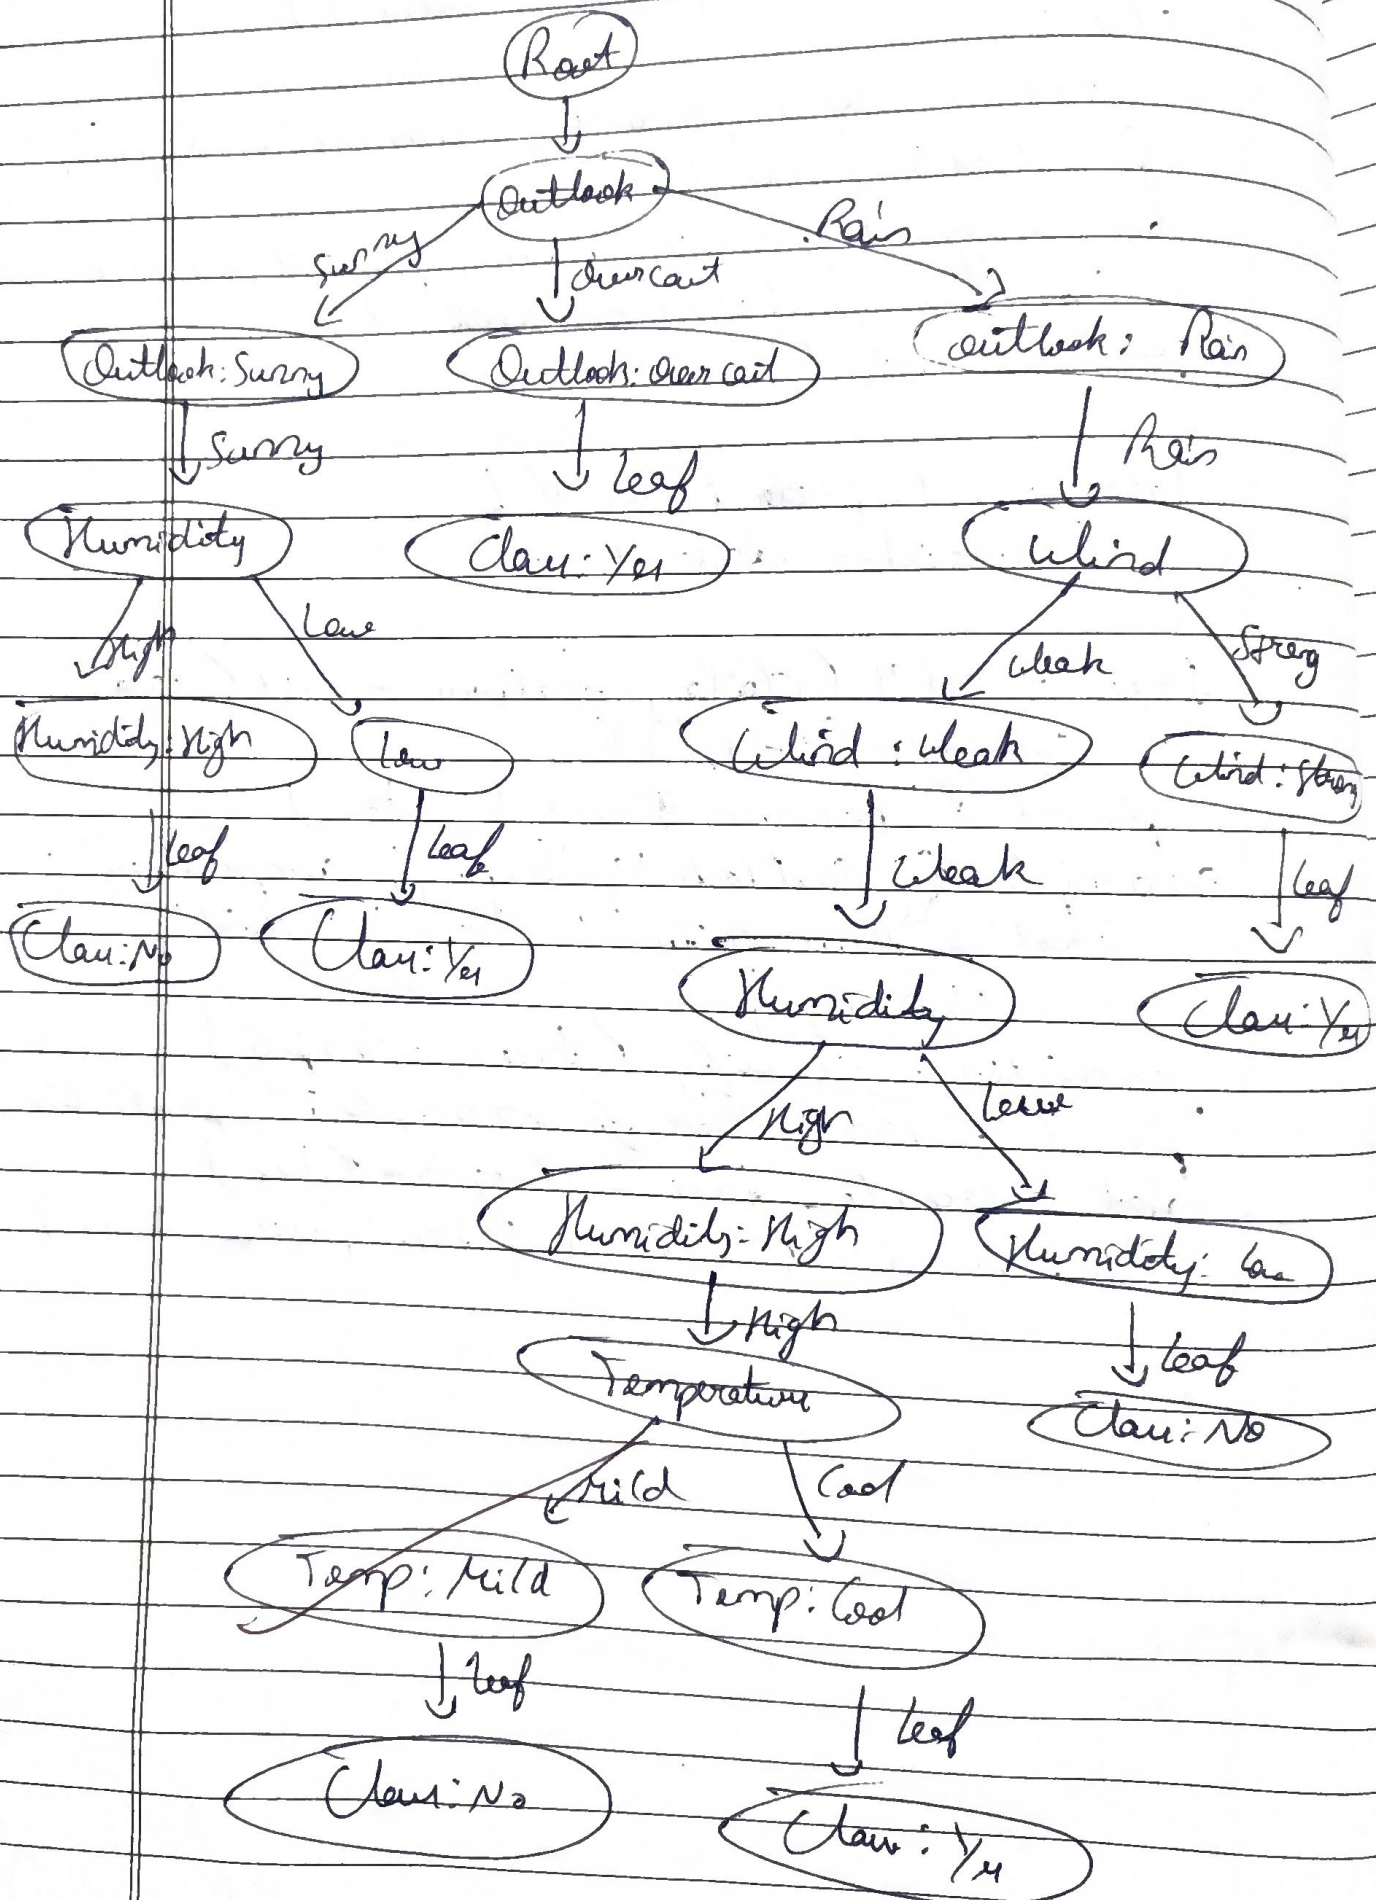 Root
Outlook
Sunny
Overcast
Rain
Outlook: Sunny
Outlook: Overcast
Outlook: Rain
Sunny
Leaf
Rain
Humidity
Class: Yes
Wind
High
Low
Weak
Strong
Humidity: High
Low
Wind: Weak
Wind: Strong
Leaf
Leaf
Weak
Leaf
Class: No
Class: Yes
Humidity
Class: Yes
High
Low
Humidity: High
Humidity: Low
High
Leaf
Temperature
Class: No
Mild
Cool
Temp: Mild
Temp: Cool
Leaf
Leaf
Class: No
Class: Yes